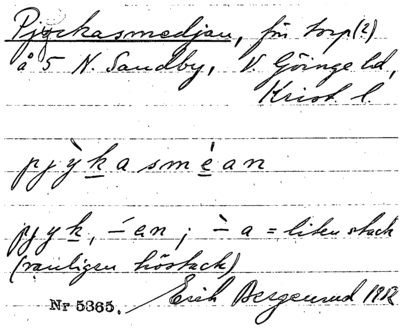 Pjyckasmedjan, fvn torp (2)
å 5 N. Sandby, V. Göinge hd,
Krist. l.
pjỳk̲a smé̲an
pjyk̲, –́en; –̀a = liten stack
(vanligen höstack)
Nr 5365. Erik Bergenrud 1952